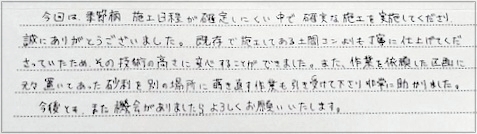 今回は、季節柄 施工日程が確定しにくい中で確実な施工を実施してくださり
誠にありがとうございました。既存で施工してある土間コンよりも丁寧に仕上げてくだ
さっていたため、その技術の高さに安心することができました。また、作業を依頼した区画に
元々置いてあった砂利を別の場所に蒔き直す作業も引き受けて下さり非常に助かりました。
今後とも、また機会がありましたらよろしくお願いいたします。